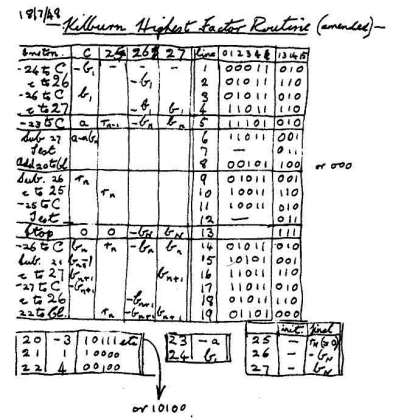 18/7/48
Kilburn Highest Factor Routine (amended)—
C 25 26 27 line 0 1 2 3 4 13 14 15
-24 to C -b1 - - - 1 00011 010
c to 26 -b1 2 01011 110
-26 to C b1 3 01011 010
c to 27 -b1 b1 4 11011 110
-23 to C a 5 11101 010
Sub. 27 a-bn 6 11011 001
Test 7 — 011
add 20 to bl. 8 00101 100 or 000
Sub. 26 rn 9 01011 001
c to 25 rn 10 10011 110
-25 to C 11 10011 010
Test 12 — 011
Stop 0 0 -bN bN 13 111
-26 to C bn rn -bn bn 14 01011 010
Sub. 21 bn+1 15 10101 001
c to 27 bn+1 16 11011 110
-27 to C -bn+1 17 11011 010
c to 26 -bn+1 18 01011 110
22 to bl. rn -bn+1 bn+1 19 01101 000
init. final
20 -3 10111 etc 23 -a 25 —
21 1 10000 24 b1 26 — -bN
22 4 00100 27 — bN
or 10100